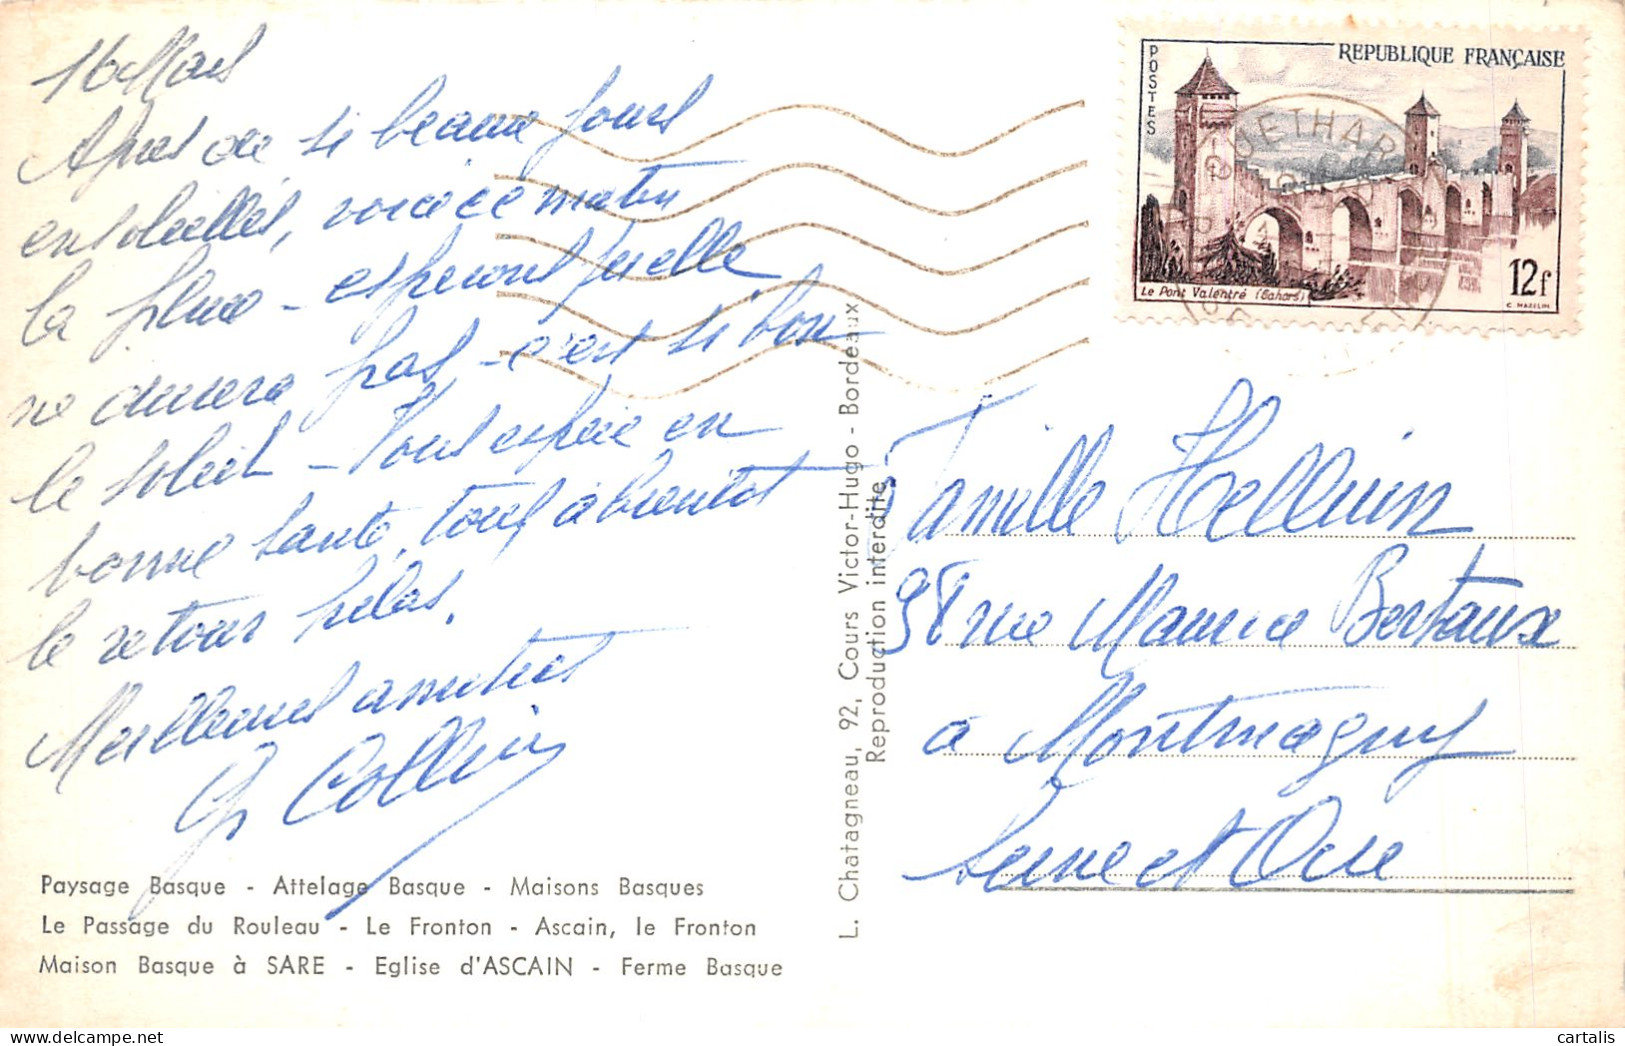 16 Mars
Après de si beaux jours
ensoleillés, voici ce matin
la pluie - espérons qu'elle
ne durera pas - c'est si bon
le soleil - Vous espère en
bonne santé, tous à bientôt
le retour hélas.
Meilleures amitiés
G. Collin
Paysage Basque - Attelage Basque - Maisons Basques
Le Passage du Rouleau - Le Fronton - Ascain, le Fronton
Maison Basque à SARE - Eglise d'ASCAIN - Ferme Basque
L. Chatagneau, 92, Cours Victor-Hugo - Bordeaux
Reproduction interdite
POSTES
REPUBLIQUE FRANÇAISE
Le Pont Valentré (Cahors)
12f
C. MAZELIN
GUETHAR
Famille Helluin
98 rue Maurice Bertaux
à Montmagny
Seine et Oise
cartalis sur Delcampe.net